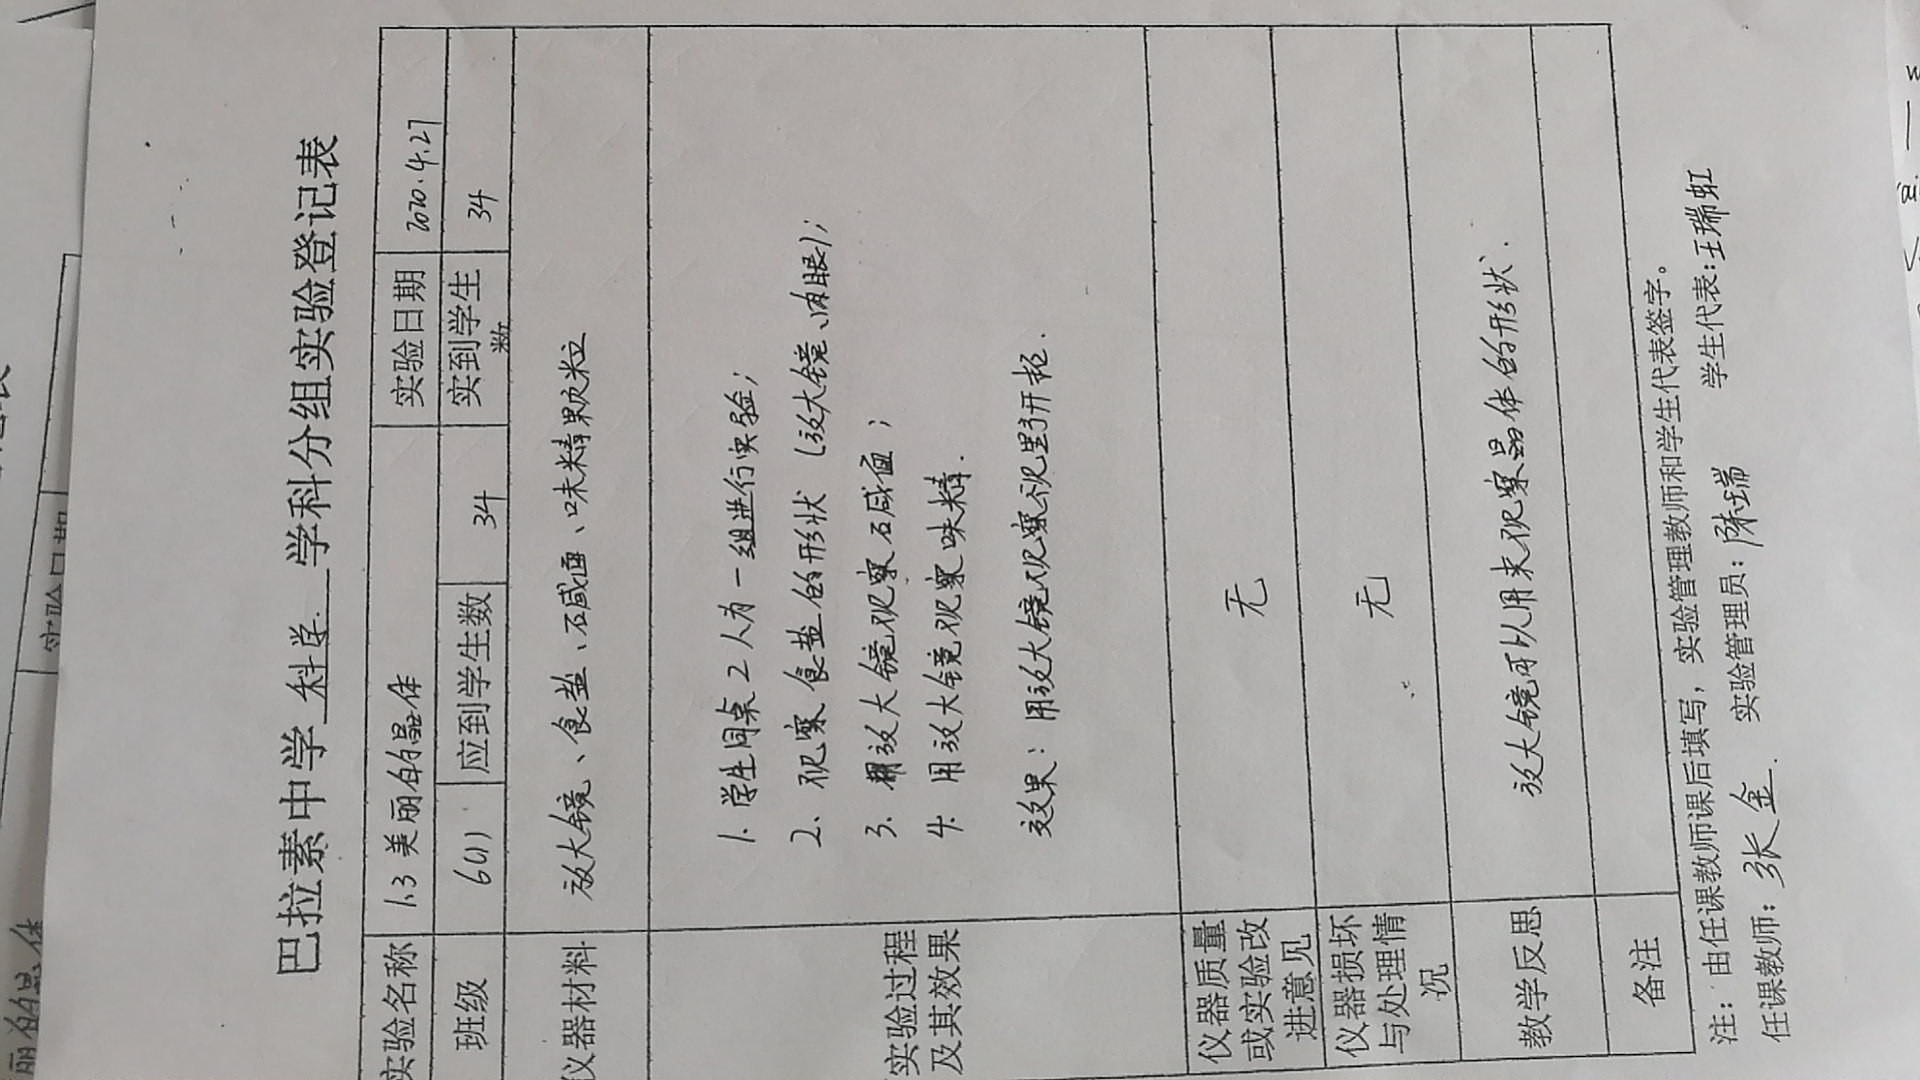 巴拉素中学 科学 学科分组实验登记表
实验名称 1.3 美丽的晶体 实验日期 2020.4.27
班级 6(1) 应到学生数 34 实到学生数 34
仪器材料 放大镜、食盐、碱面、味精颗粒
实验过程及其效果
1. 学生同桌2人为一组进行实验;
2. 观察食盐的形状(放大镜、肉眼);
3. 用放大镜观察碱面;
4. 用放大镜观察味精.
效果: 用放大镜观察视野开拓.
仪器质量或实验改进意见 无
仪器损坏与处理情况 无
教学反思 放大镜可以用来观察晶体的形状.
备注
注:由任课教师课后填写,实验管理教师和学生代表签字。
任课教师:张金. 实验管理员:陈瑞 学生代表:王瑞虹
实验日期
丽的晶体